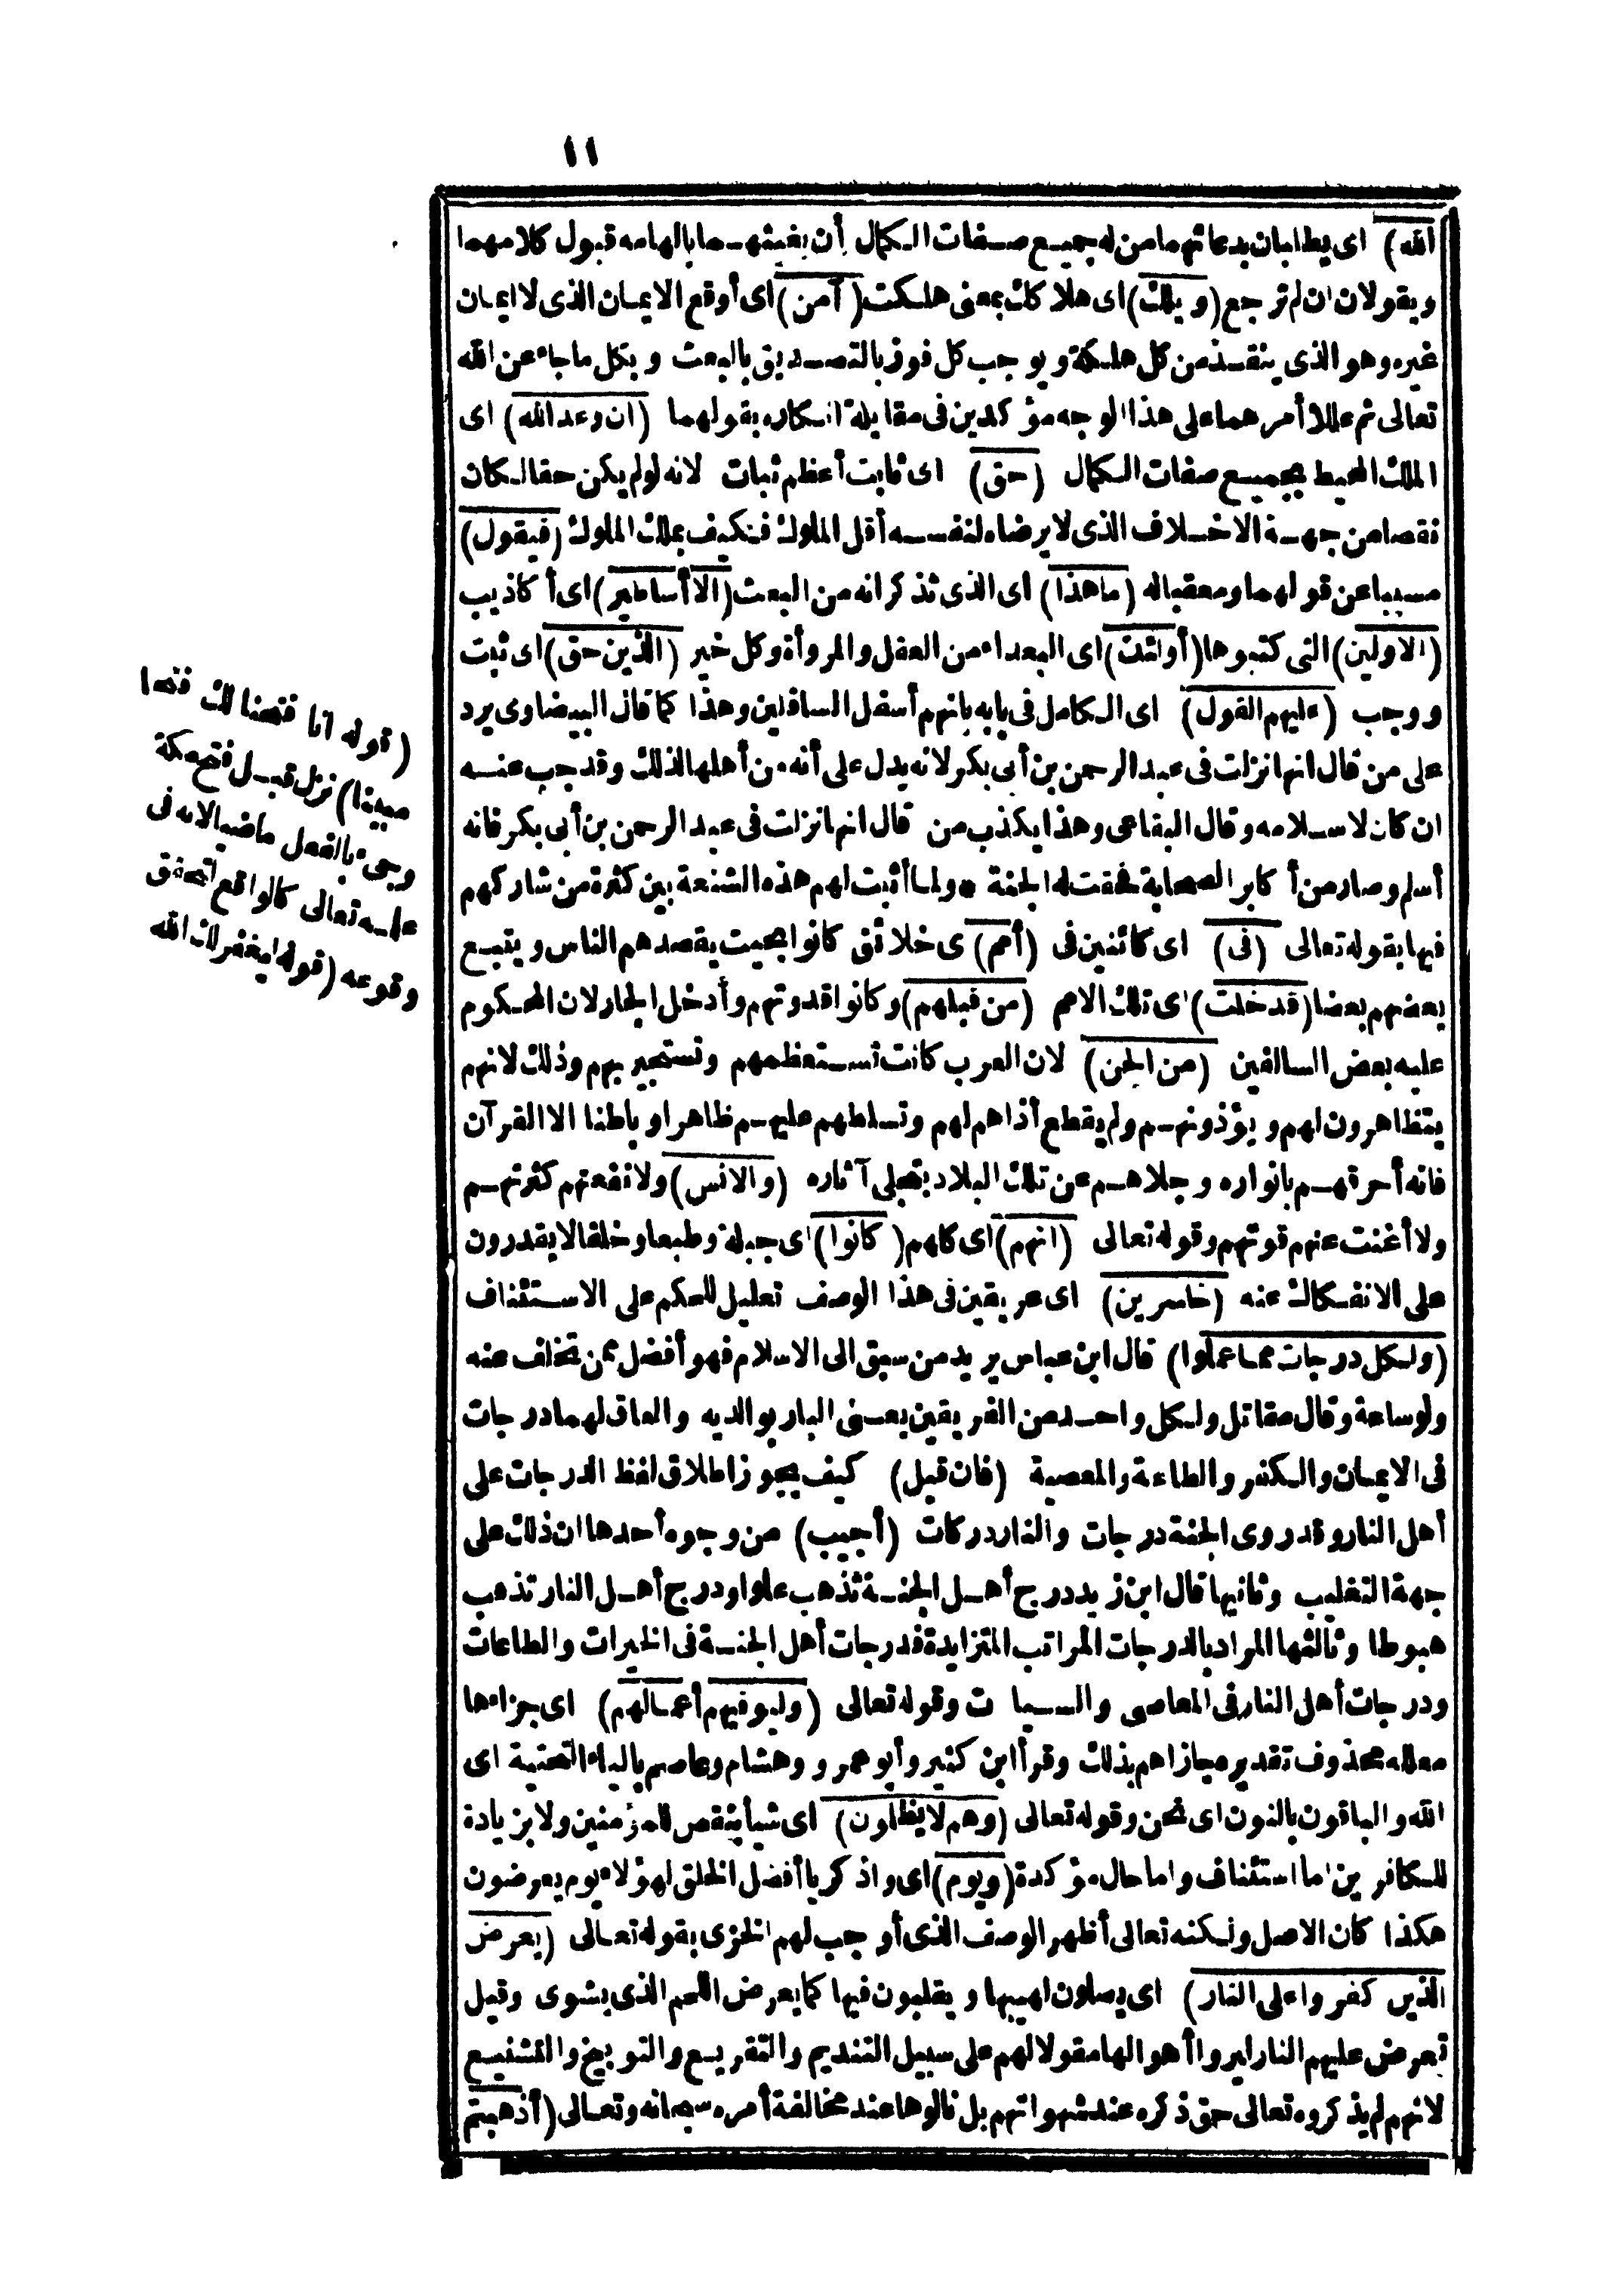 ١١
الله) اى يطلبان بدعائهما من له جميع صفات الكمال أن يغيثهما بالهامه قبول كلامهما
ويقولان ان لم ترجع (ويلك) اى هلا كك بمعنى هلكت (آمن) اى أوقع الايمان الذى لا ايمان
غيره وهو الذى ينقذ من كل هلكة ويوجب كل فوز بالتصديق بالبعث وبكل ما جاء عن الله
تعالى ثم عللا أمرهما على هذا الوجه مؤكدين فى مقابلة انكاره بقولهما (ان وعد الله) اى
الملك المحيط بجميع صفات الكمال (حق) اى ثابت أعظم ثبات لانه لو لم يكن حقا لكان
نقصا من جهة الاخلاف الذى لا يرضاه لنفسه أقل الملوك فكيف بملك الملوك (فيقول)
مسببا عن قولهما ومعقبا له (ما هذا) اى الذى تذكرانه من البعث (الا أساطير) اى أكاذيب
(الاولين) التى كتبوها (أولئك) اى البعداء من العقل والمروأة وكل خير (الذين حق) اى ثبت
ووجب (عليهم القول) اى الكامل فى بابه بانهم أسفل السافلين وهذا كما قال البيضاوى يرد
على من قال انها نزلت فى عبد الرحمن بن أبى بكر لانه يدل على أنه من أهلها لذلك وقد جب عنه
ان كان لاسلامه وقال البقاعى وهذا يكذب من قال انها نزلت فى عبد الرحمن بن أبى بكر فانه
أسلم وصار من أكابر الصحابة فحقت له الجنة * ولما أثبت لهم هذه الشنعة بين كثرة من شاركهم
فيها بقوله تعالى (فى) اى كائنين فى (أمم) ى خلائق كانوا بحيث يقصدهم الناس ويتبع
بعضهم بعضا (قد خلت) اى تلك الامم (من قبلهم) وكانوا قدوتهم وأدخل الجار لان المحكوم
عليه بعض السالفين (من الجن) لان العرب كانت تستعظمهم وتستجير بهم وذلك لانهم
يتظاهرون لهم ويؤذونهم ولم يقطع أذاهم لهم وتسلطهم عليهم ظاهرا وباطنا الا القرآن
فانه أحرقهم بانواره وجلاهم عن تلك البلاد بتجلى آثاره (والانس) ولا نفعتهم كثرتهم
ولا أغنت عنهم قوتهم وقوله تعالى (انهم) اى كلهم (كانوا) اى جبلة وطبعا وخلقا لا يقدرون
على الانفكاك عنه (خاسرين) اى عريقين فى هذا الوصف تعليل للحكم على الاستئناف
(ولكل درجات مما عملوا) قال ابن عباس يريد من سبق الى الاسلام فهو أفضل ممن تخلف عنه
ولو ساعة وقال مقاتل ولكل واحد من الفريقين يعنى البار بوالديه والعاق لهما درجات
فى الايمان والكفر والطاعة والمعصية (فان قيل) كيف يجوز اطلاق لفظ الدرجات على
أهل النار وقد روى الجنة درجات والنار دركات (أجيب) من وجوه أحدها ان ذلك على
جهة التغليب وثانيها قال ابن زيد درج أهل الجنة تذهب علوا ودرج أهل النار تذهب
هبوطا وثالثها المراد بالدرجات المراتب المتزايدة فدرجات أهل الجنة فى الخيرات والطاعات
ودرجات أهل النار فى المعاصى والسيات وقوله تعالى (وليوفيهم أعمالهم) اى جزاءها
معلله محذوف تقديره جازاهم بذلك وقرأ ابن كثير وأبو عمرو وهشام وعاصم بالياء التحتية اى
الله والباقون بالنون اى نحن وقوله تعالى (وهم لا يظلمون) اى شيأ بنقص للمؤمنين ولا بزيادة
للكافرين اما استئناف واما حال مؤكدة (ويوم) اى واذكر يا أفضل الخلق لهؤلاء يوم يعرضون
هكذا كان الاصل ولكنه تعالى أظهر الوصف الذى أوجب لهم الخزى بقوله تعالى (يعرض
الذين كفروا على النار) اى يصلون لهيبها ويقلبون فيها كما يعرض اللحم الذى يشوى وقيل
تعرض عليهم النار ليروا أهوالها مقولا لهم على سبيل التنديم والتقريع والتوبيخ والتشنيع
لانهم لم يذكروه تعالى حق ذكره عند شهواتهم بل نالوها عند مخالفة أمره سبحانه وتعالى (أذهبتم
(قوله انا فتحنا لك فتحا
مبينا) نزل قبل فتح مكة
وجىء بالفعل ماضيا لانه فى
علمه تعالى كالواقع لتحقق
وقوعه (قوله ليغفر لك الله